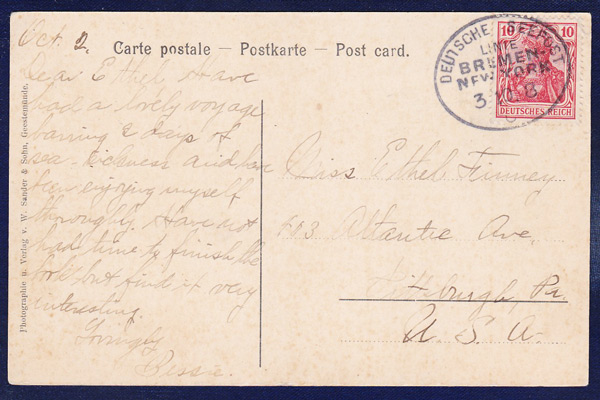 Oct. 2.
Carte postale – Postkarte – Post card.
Dear Ethel, Have
had a lovely voyage
barring 2 days of
sea-sickness and have
been enjoying myself
thoroughly. Have not
had time to finish the
book but find it very
interesting.
Lovingly
Bessie.
Photographie u. Verlag v. W. Sander & Sohn, Geestemünde.
DEUTSCHE SEEPOST
LINIE
BREMEN-
NEW-YORK
10 10
DEUTSCHES REICH
Miss Ethel Finney
Atlantic Ave.
Pittsburgh, Pa.
U. S. A.